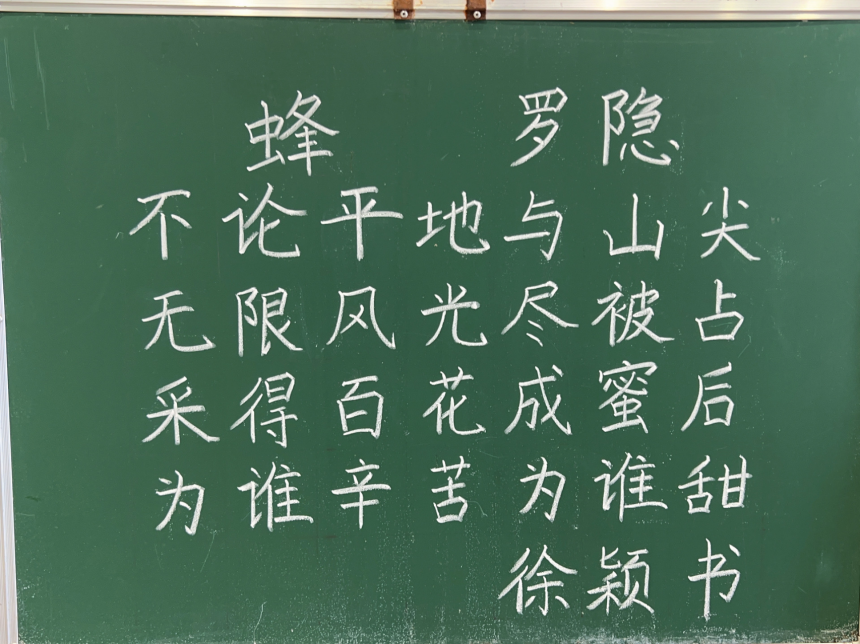 蜂 罗隐
不论平地与山尖
无限风光尽被占
采得百花成蜜后
为谁辛苦为谁甜
徐颖书